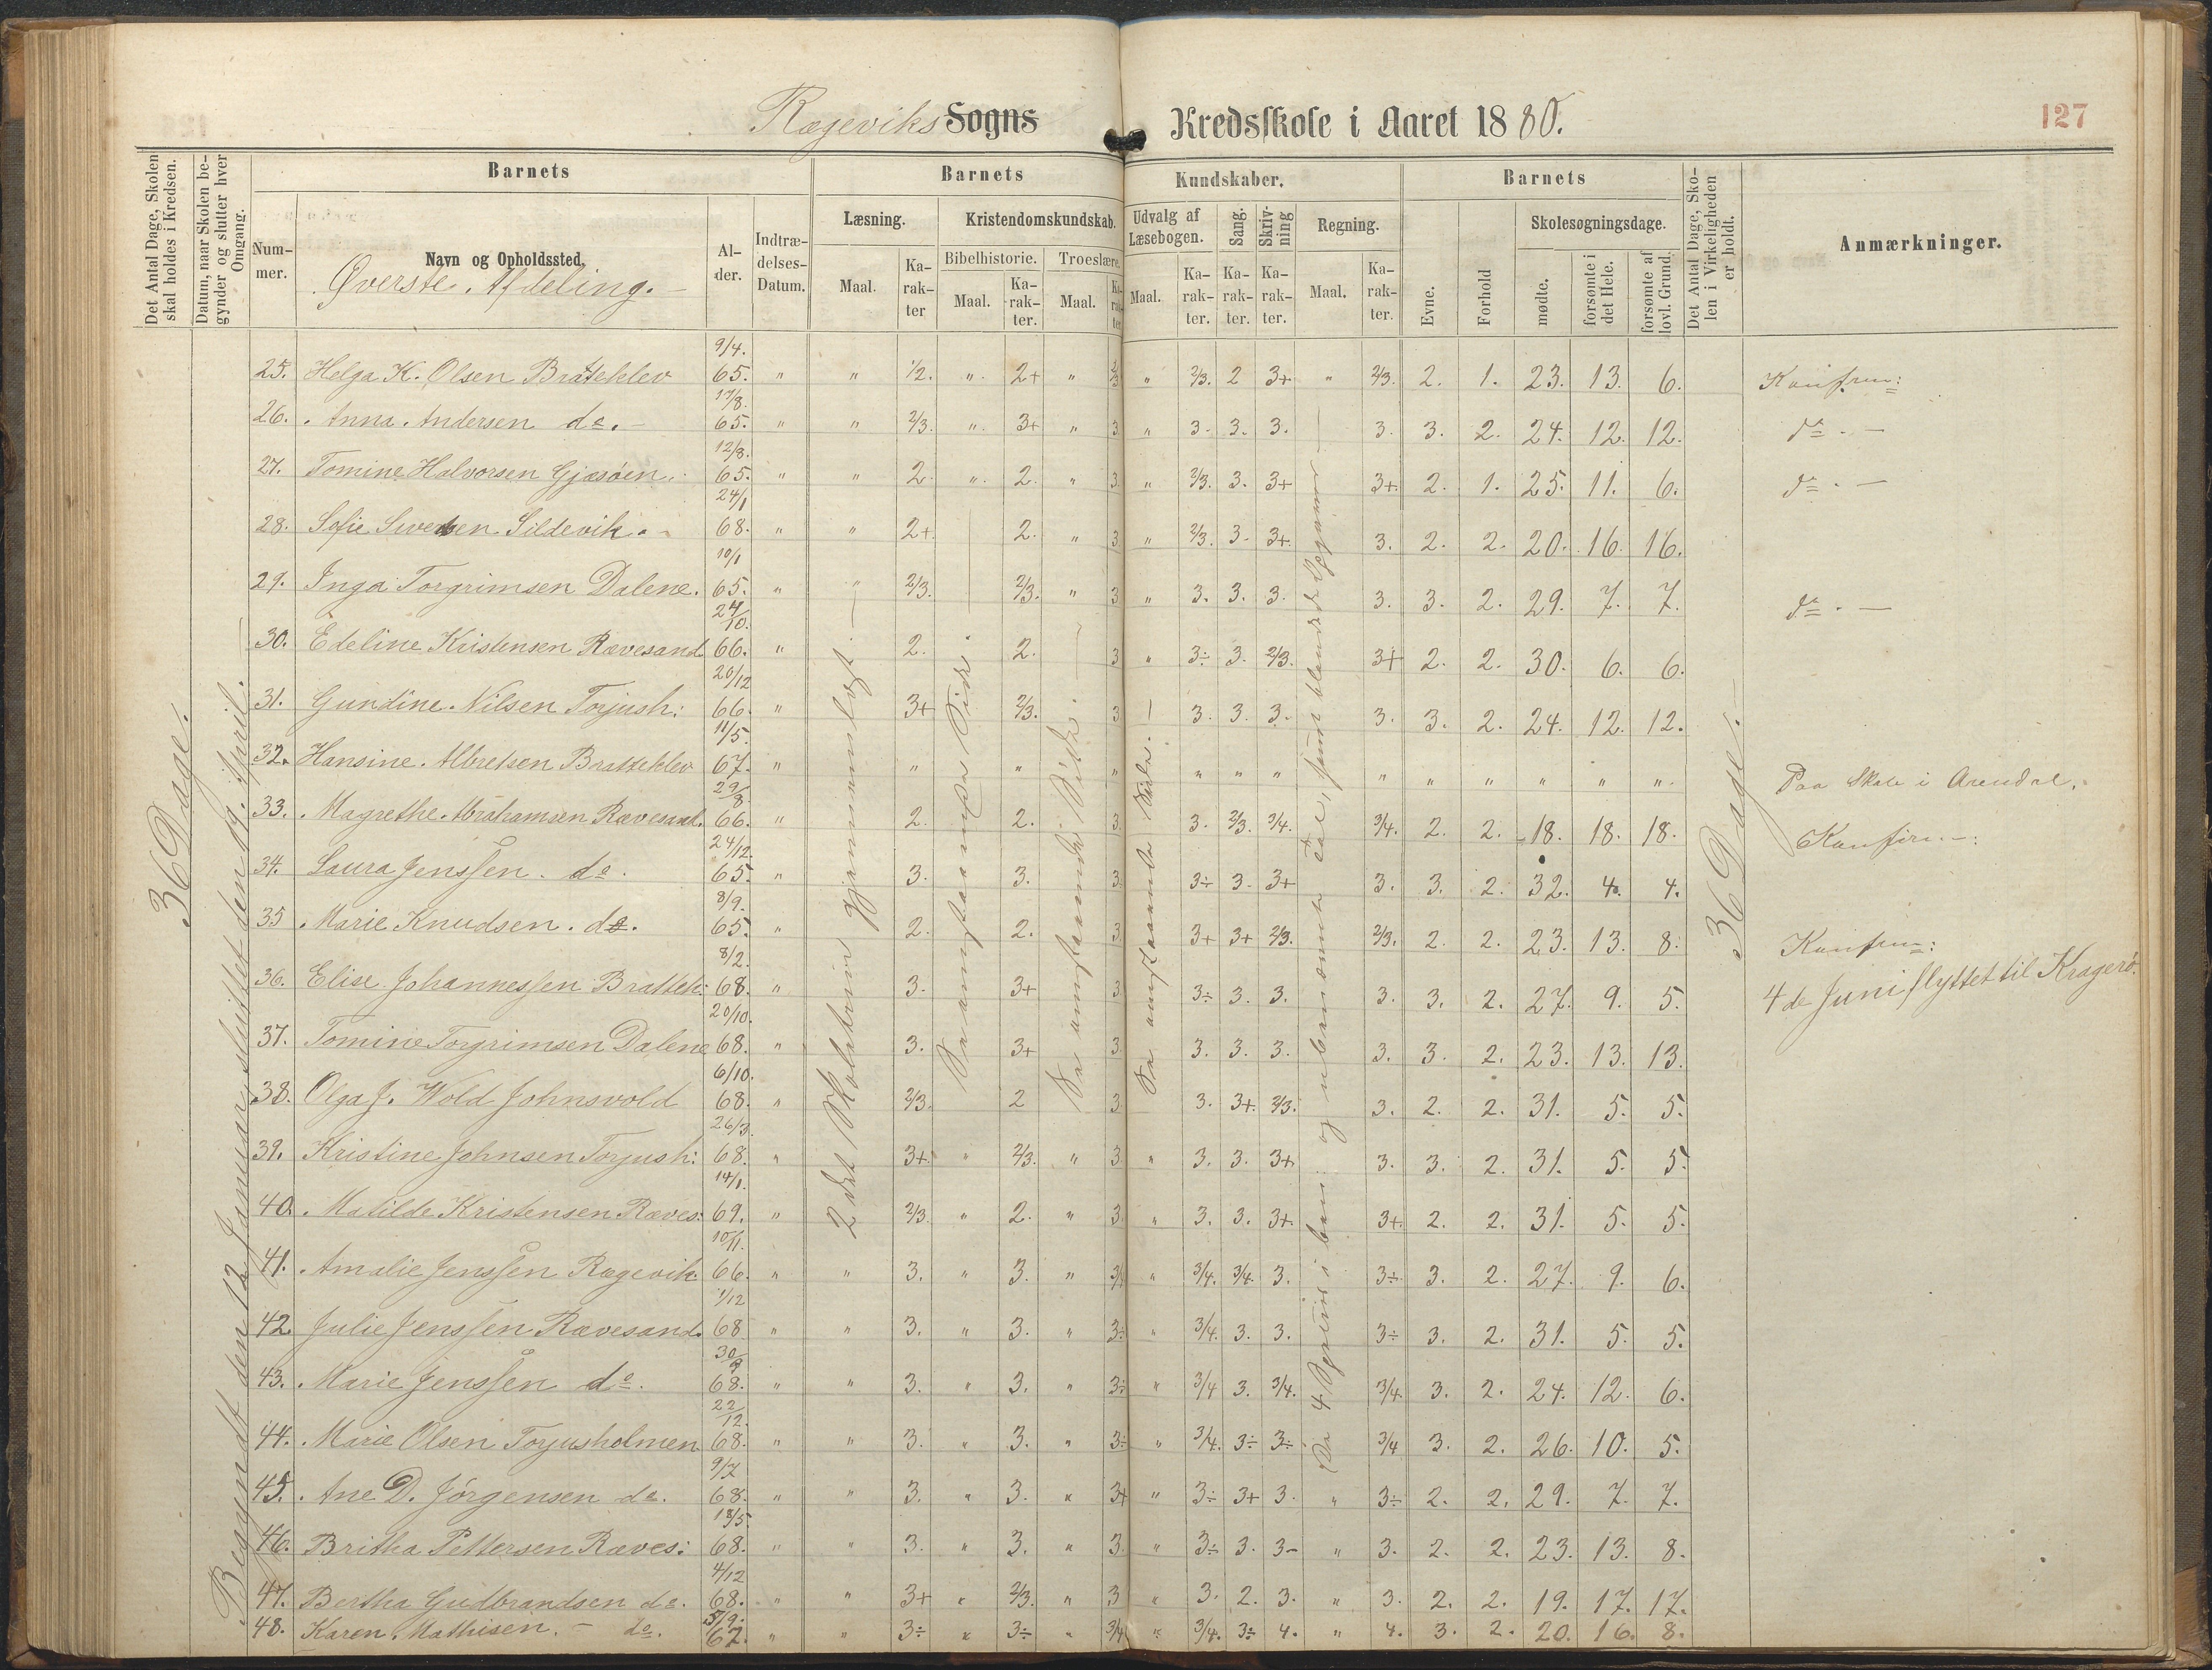 Rægeviks Sogns Kredsskole i Aaret 1880.
127
Det Antal Dage, Skolen skal holdes i Kredsen.
Datum, naar Skolen begynder og slutter hver Omgang.
Barnets
Nummer.
Navn og Opholdssted.
Øverste Afdeling.
Alder.
Indtrædelses-Datum.
Barnets Kundskaber.
Læsning.
Maal. Karakter
Kristendomskundskab.
Bibelhistorie.
Maal. Karakter.
Troeslære.
Maal. Karakter
Udvalg af Læsebogen.
Maal. Karakter.
Sang. Karakter.
Skrivning Karakter.
Regning.
Maal. Karakter.
Barnets
Evne.
Forhold
Skolesøgningsdage.
mødte.
forsømte i det Hele.
forsømte af lovl. Grund.
Det Antal Dage, Skolen i Virkeligheden er holdt.
Anmærkninger.
36 Dage.
Begyndt den 12 Januar, sluttet den 19. April.
2det Skoletrin gjennemlæst.
36 Dage.
25. Helga K. Olsen Bratteklev 9/4. 65. " " 1/2. " 2+ " 2/3 " 2/3. 2 3+ " 2/3. 2. 1. 23. 13. 6. Konfirm:
26. Anna Andersen do. 17/8. 65. " " 2/3. " 3+ " 3. " 3. 3. 3. 3. 3. 2. 24. 12. 12. do. -
27. Tomine Halvorsen Gjæsøen. 12/8. 65. " " 2. " 2. " 3. " 2/3. 3. 3+ 3+. 2. 1. 25. 11. 6. do. -
28. Sofie Sivertsen Sildevik. 24/1 68. " " 2+. 2. " 3. " 2/3. 3. 3+. 3. 2. 2. 20. 16. 16.
29. Inga Torgrimsen Dalene. 10/1 65. " " 2/3. 2/3. " 3 " 3. 3. 3. 3. 3. 2. 29. 7. 7. do. -
30. Edeline Kristensen Rævesand 24/10. 66. " 2. 2. 3 " 3÷ 3. 2/3. 3+ 2. 2. 30. 6. 6.
31. Gundine Nilsen Torjush: 20/12 66. " 3+ 2/3. 3 3. 3. 3. 3. 3. 2. 24. 12. 12.
32. Hansine Albretsen Bratteklev 11/5. 67. " " " " " " " " " " " " " Paa Skole i Arendal.
33. Magrethe Abrahamsen Rævesand. 29/8 66. " 2. 2. 3. 3. 2/3. 3/4. 3/4. 2. 2. 18. 18. 18. Konfirm:
34. Laura Jensen. do. 24/12. 65. " 3. 3. 3. 3÷ 3. 3+ 3. 3. 2. 32. 4. 4.
35 Marie Knudsen. do. 8/9. 65. " 2. 2. 3. 3+ 3+ 2/3. 2/3. 2. 2. 23. 13. 8. Konfirm:
36. Elise Johannessen Brattek: 8/2. 68. " 3. 3+ 3. 3÷ 3. 3. 3. 3. 2. 27. 9. 5. 4de Juni flyttet til Kragerø.
37. Tomine Torgrimsen Dalene 20/10. 68. " 3. 3+ 3. 3. 3. 3. 3. 3. 2. 23. 13. 13.
38. Olga J. Wold Johnsvold 6/10. 68. " 2/3. 2 3 3. 3+. 2/3. 3. 2. 2. 31. 5. 5.
39. Kristine Johnsen Torjush: 26/3. 68. " 3+. " 2/3. " 3. " 3. 3. 3+ 3. 3. 2. 31. 5. 5.
40. Matilde Kristensen Ræves: 14/1. 69. " 2/3. " 2. " 3. " 3. 3. 3+. 3+. 2. 2. 31. 5. 5.
41. Amalie Jenssen Rægevik. 10/11. 66. " " 3. " 3. " 3/4 " 3/4. 3/4. 3. 3÷. 3. 2. 27. 9. 6.
42. Julie Jenssen Rævesand. 1/12 68 " " 3. " 3. " 3÷ " 3/4. 3. 3. 3÷ 3. 2. 31. 5. 5.
43. Marie Jenssen do. 30/9 68. " " 3. " 3. " 3÷ " 3/4 3. 3/4. 3/4. 3. 2. 24. 12. 6.
44. Marie Olsen Torjusholmen 22/12. 68. " " 3. " 3. " 3÷ " 3/4. 3÷ 3÷. 3/4 3. 2. 26. 10. 5.
45. Ane D. Jørgensen do. 9/7 68. " " 3. " 3. " 3+ " 3÷ 3+ 3. " 3÷ 2. 2. 29. 7. 7.
46. Britha Pettersen Ræves: 13/5. 68. " " 3. " 3. " 3. " 3÷ 3. 3- " 3. 2. 2. 23. 13. 8.
47. Bertha Gudbrandsen do. 4/12 68. " " 3+ " 2/3. " 3 " 3. 2. 3. " 3. 2. 2. 19. 17. 17.
48. Karen Mathisen. - do. 5/9. 67. " " 3÷ " 3÷ " 3/4 " 3/4. 3÷ 4. " 4. 3. 2. 20. 16. 8.